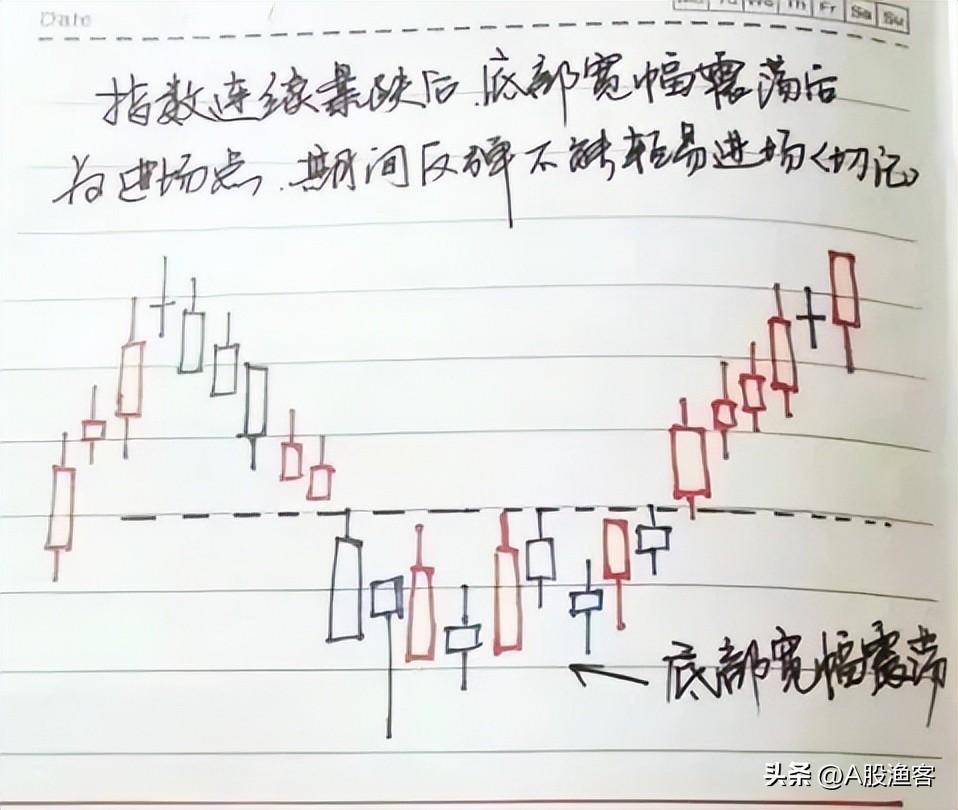 Date
Th Fr Sa Su
指数连续暴跌后.底部宽幅震荡后
为进场点.期间反弹不能轻易进场(切记)
底部宽幅震荡
头条 @A股渔客